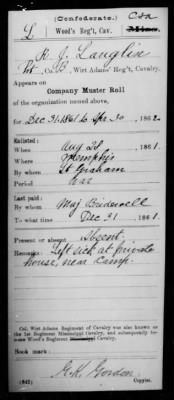 (Confederate.)
CSA
L Wood's Reg't, Cav. Miss.
R. J. Langlin
Pvt, Co. B, Wirt Adams' Reg't, Cavalry.
Appears on
Company Muster Roll
of the organization named above,
for Dec 31, 1861 to Apr. 30, 1862.
Enlisted:
When Aug 20, 1861.
Where Memphis
By whom St Graham
Period War
Last paid:
By whom Maj Bridewell
To what time Dec 31, 1861.
Present or absent Absent
Remarks: Left sick at private
house, near Camp.
Col. Wirt Adams Regiment of Cavalry was also known as
the 1st Regiment Mississippi Cavalry, and subsequently be-
came Wood's Regiment
Book mark:
G.K. Gordon
(642) Copyist.